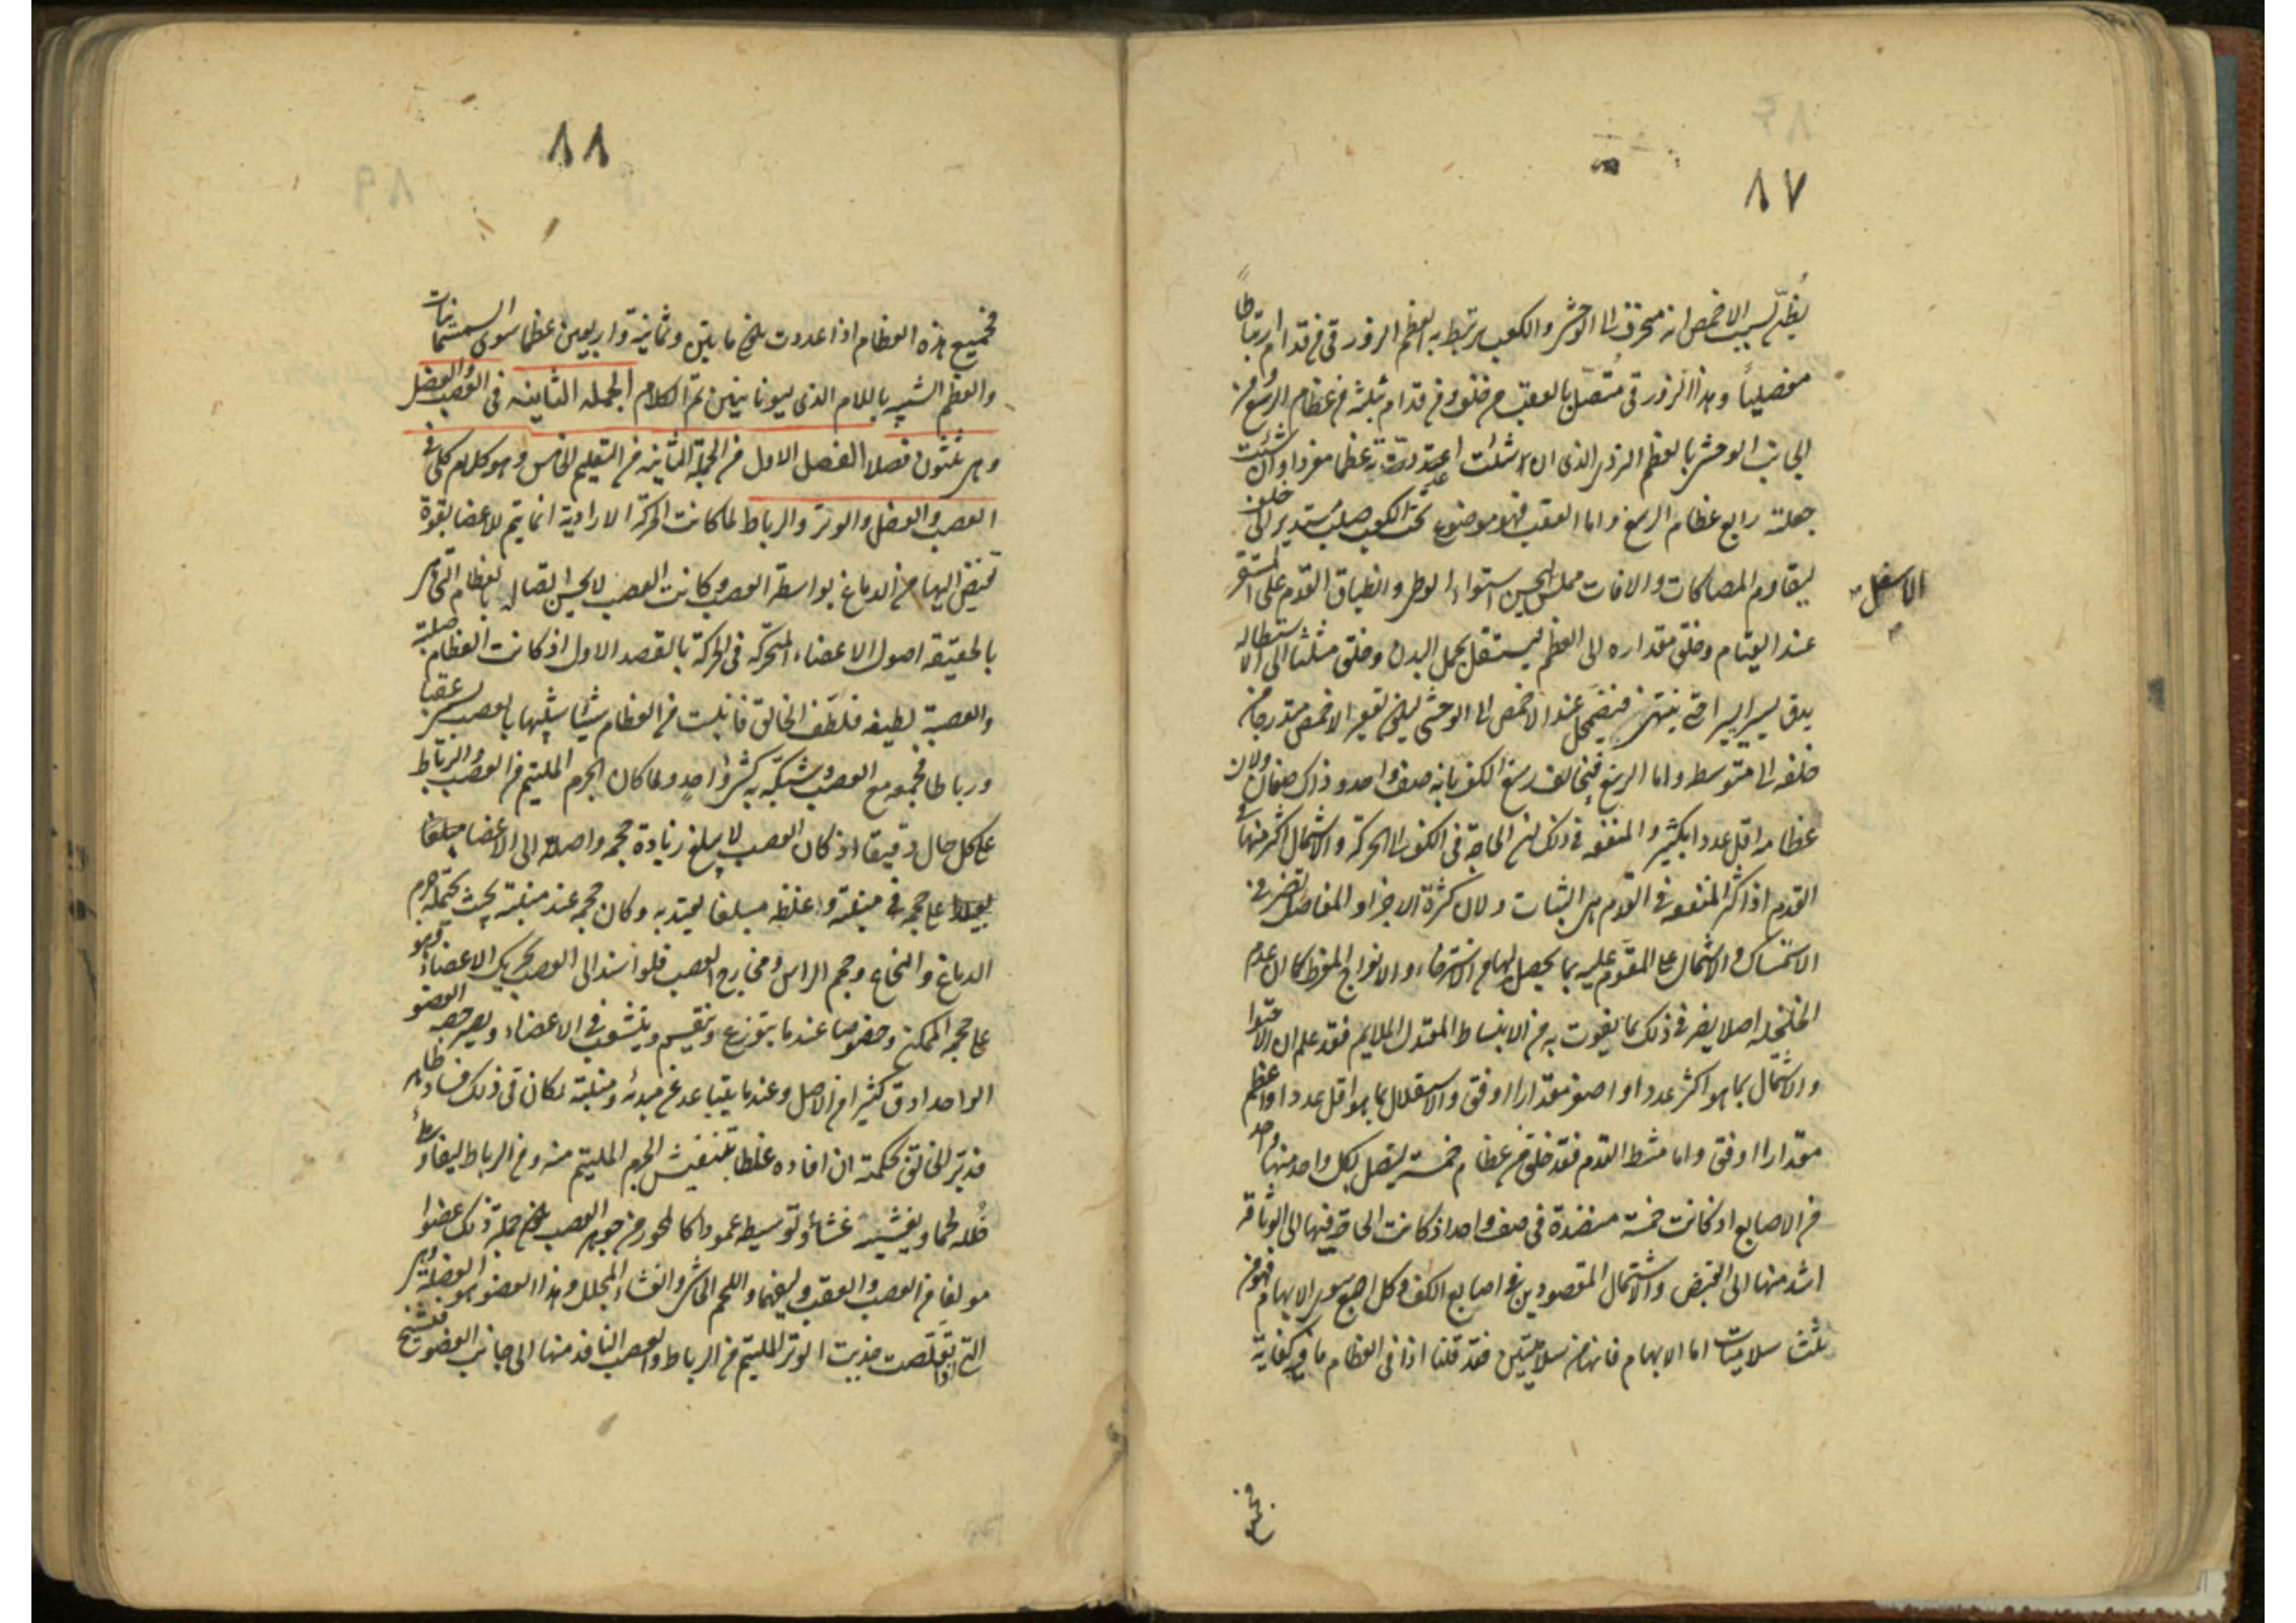 ٨٧
يظن بسبب الاخمص انه منحرف الى الوحشى والكعب يرتبط به العظم الزورقى فى قدام ارتباطا
مفصليا وهذا الزورقى متصل بالعقب من خلف ومن قدام بثلثة من عظام الرسغ ومن
الجانب الوحشى بالعظم النردى الذى ان شئت اعتددت به عظما مفردا وان شئت
جعلته رابع عظام الرسغ واما العقب فهو موضوع تحت الكعب صلب مستدير الى خلف
ليقاوم المصاكات والافات مملس الاسفل ليحسن استواء الوطى وانطباق القدم على المستقر
عند القيام وخلق مقداره الى العظم ليستقل بحمل البدن وخلق مثلثا الى الاستطاله
يدق يسيرا يسيرا حتى ينتهى فيضمحل عند الاخمص الى الوحشى ليكون تقعير الاخمص متدرجا من
خلف الى متوسطه واما الرسغ فيخالف رسغ الكف بانه صف واحد وذاك صفان ولان
عظامه اقل عددا بكثير والمنفعه فى ذلك ان الحاجة فى الكف الى الحركة والاشتمال اكثر منها فى
القدم اذ اكثر المنفعه فى القدم هى الثبات ولان كثرة الاجزا والمفاصل تضر فى
الاستمساك والاشتمال على المقوم عليه بما يحصل لها من الاسترخاء والانفراج المفرط كما ان عدم
الخلخله اصلا يضر فى ذلك بما يفوت به من الانبساط المعتدل الملايم فقد علم ان الاحتوا
والاشتمال بما هو اكثر عددا واصغر مقدارا اوفق والاستقلال بما هو اقل عددا واعظم
مقدارا اوفق واما مشط القدم فقد خلق من عظام خمسة ليتصل بكل واحد منها واحد
من الاصابع اذ كانت خمسة منضدة فى صف واحد اذ كانت الحاجة فيها الى الوثاقه
اشد منها الى القبض والاشتمال المقصودين فى اصابع الكف وكل اصبع سوى الابهام فهو من
ثلث سلاميات اما الابهام فانها من سلاميتين فقد قلنا اذا فى العظام ما فيه كفاية
فجميع
٨٨
فجميع هذه العظام اذا عددت تكون مايتين وثمانية واربعين عظما سوى السمسمانيات
والعظم الشبيه باللام الذى ليونانيين تم الكلام الجمله الثانيه فى العصب والعضل
وهى ثلثون فصلا الفصل الاول من الجملة الثانيه من التعليم الخامس وهو كلام كلى فى
العصب والعضل والوتر والرباط لما كانت الحركة الارادية انما يتم للاعضا بقوة
تفيض اليها من الدماغ بواسطة العصب وكانت العصب لا يحسن اتصالها بالعظام التى هى
بالحقيقه اصول الاعضاء المتحركه فى الحركة بالقصد الاول اذ كانت العظام صلبة
والعصبة لطيفه فلطف الخالق فانبت من العظام شيئا شبيها بالعصب يسمى عقبا
ورباطا فجمعه مع العصب وشبكه به كشئ واحد ولما كان الجرم الملتيم من العصب والرباط
على كل حال دقيقا اذ كان العصب لا يبلغ زيادة حجمه واصلا الى الاعضا مبلغا
على حجمه فى منبته وغلظه مبلغا يعتد به وكان حجمه عند منبته بحيث يحتمله جرم
الدماغ والنخاع وحجم الراس ومخارج العصب فلو اسند الى العصب تحريك الاعضاء وهو
على حجمه المتمكن وخصوصا عند ما يتوزع وينقسم ويتشعب فى الاعضاء ويصير حصة العضو
الواحد ادق كثيرا من الاصل وعند ما يتباعد عن مبدئه ومنبته لكان فى ذلك فساد ظاهر
فدبر الخالق بحكمته ان افاده غلظا بتنفيش الجرم الملتيم منه ومن الرباط ليفا وملأ
خلله لحما وبغشيه غشاء وتوسيطه عمودا كالمحور من جوهر العصب يكون جملة ذلك عضوا
مولفا من العصب والعقب وليفهما واللحم الحاشى والغشاء المجلل وهذا العضو هو العضلة وهى
التى اذا تقلصت جذبت الوتر الملتيم من الرباط والعصب النافذ منها الى جانب العضو فتشنج